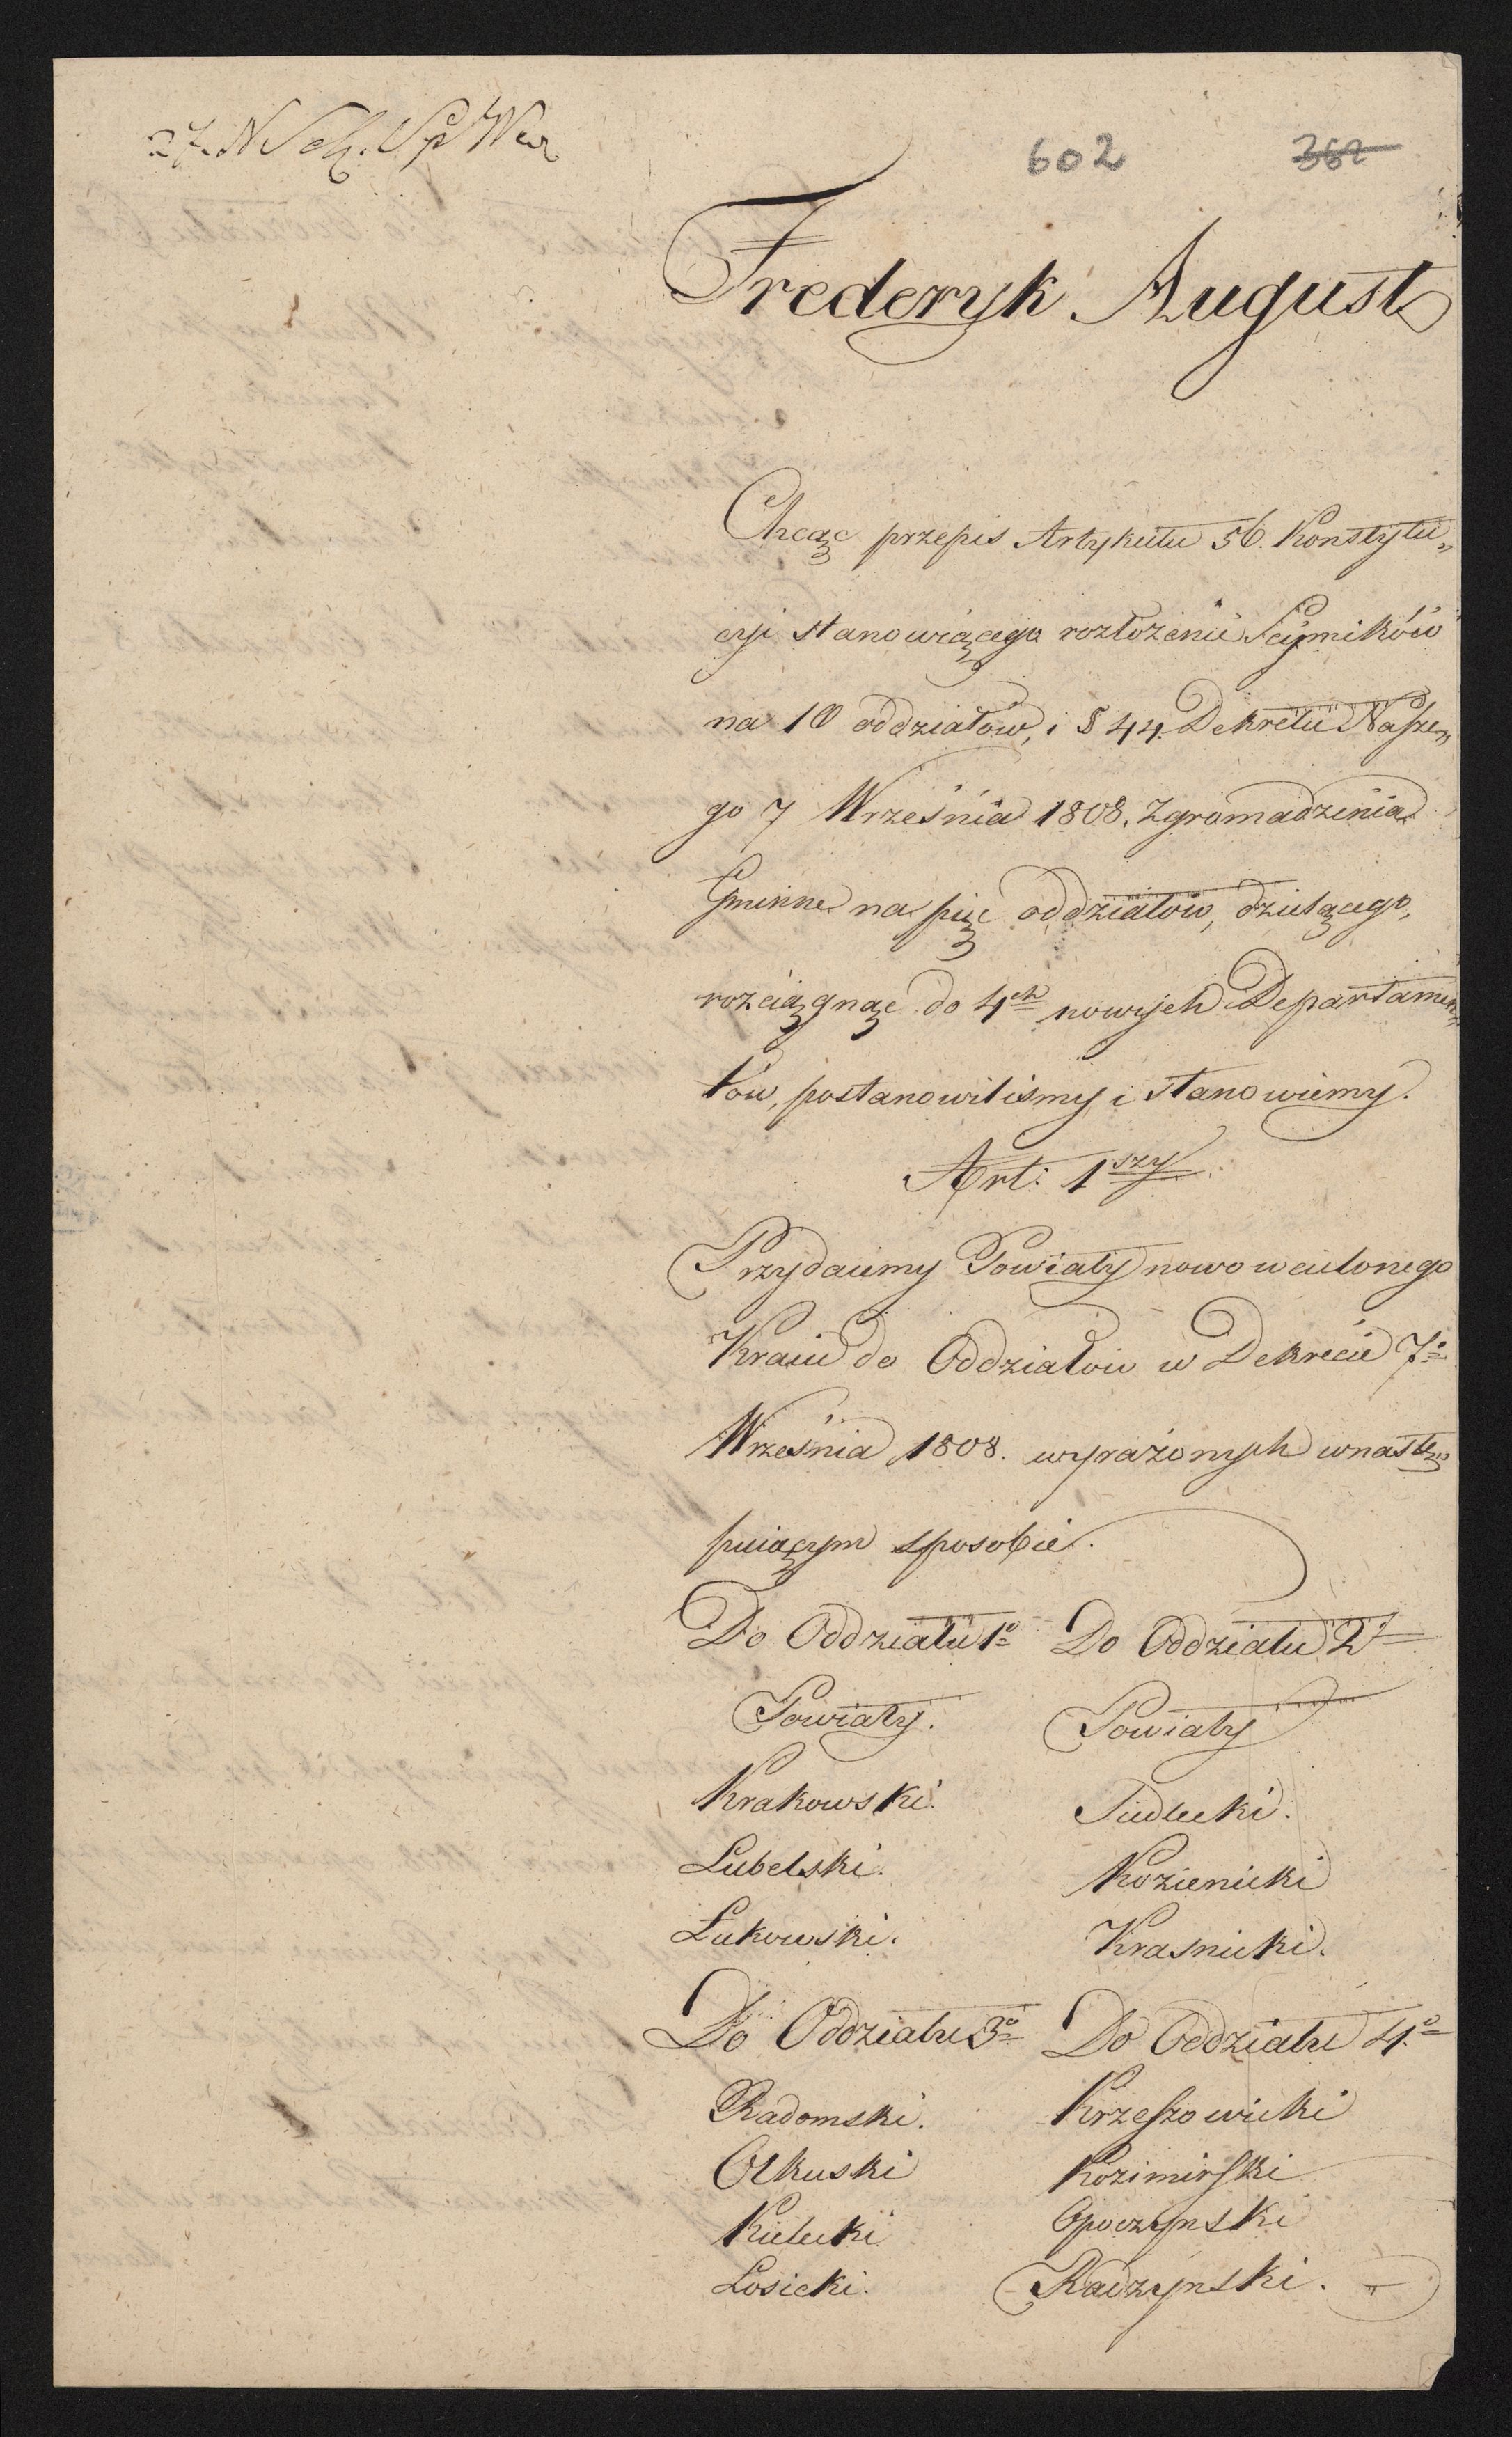 602 362
Frederyk August
Chcąc przepis Artykułu 56. Konstytu„
cyi stanowiącego rozłożenie Seymików
na 10 oddziałów, i § 44. Dekretu Nasze„
go 7 Września 1808. Zgromadzenia
Gminne na pięc oddziałów, dzielącego,
rozciągnąc do 4ch nowych Departamen„
tów, postanowilismy i stanowiemy.
Art: 1szy
Przydaiemy Powiaty nowo wcielonego
Kraiu do Oddziałow w Dekrecie 7o
Września 1808. wyrażonych w nastę„
puiącym sposobie.
Do Oddziału 1o Do Oddziału 2o
Powiaty. Powiaty
Krakowski. Siedlecki.
Lubelski. Kozienicki
Łukowski. Krasnicki.
Do Oddziału 3o Do Oddziału 4o
Radomski. Krzeszowicki
Olkuski Kozimirski
Kielecki Opoczynski
Łosicki. Radzynski.